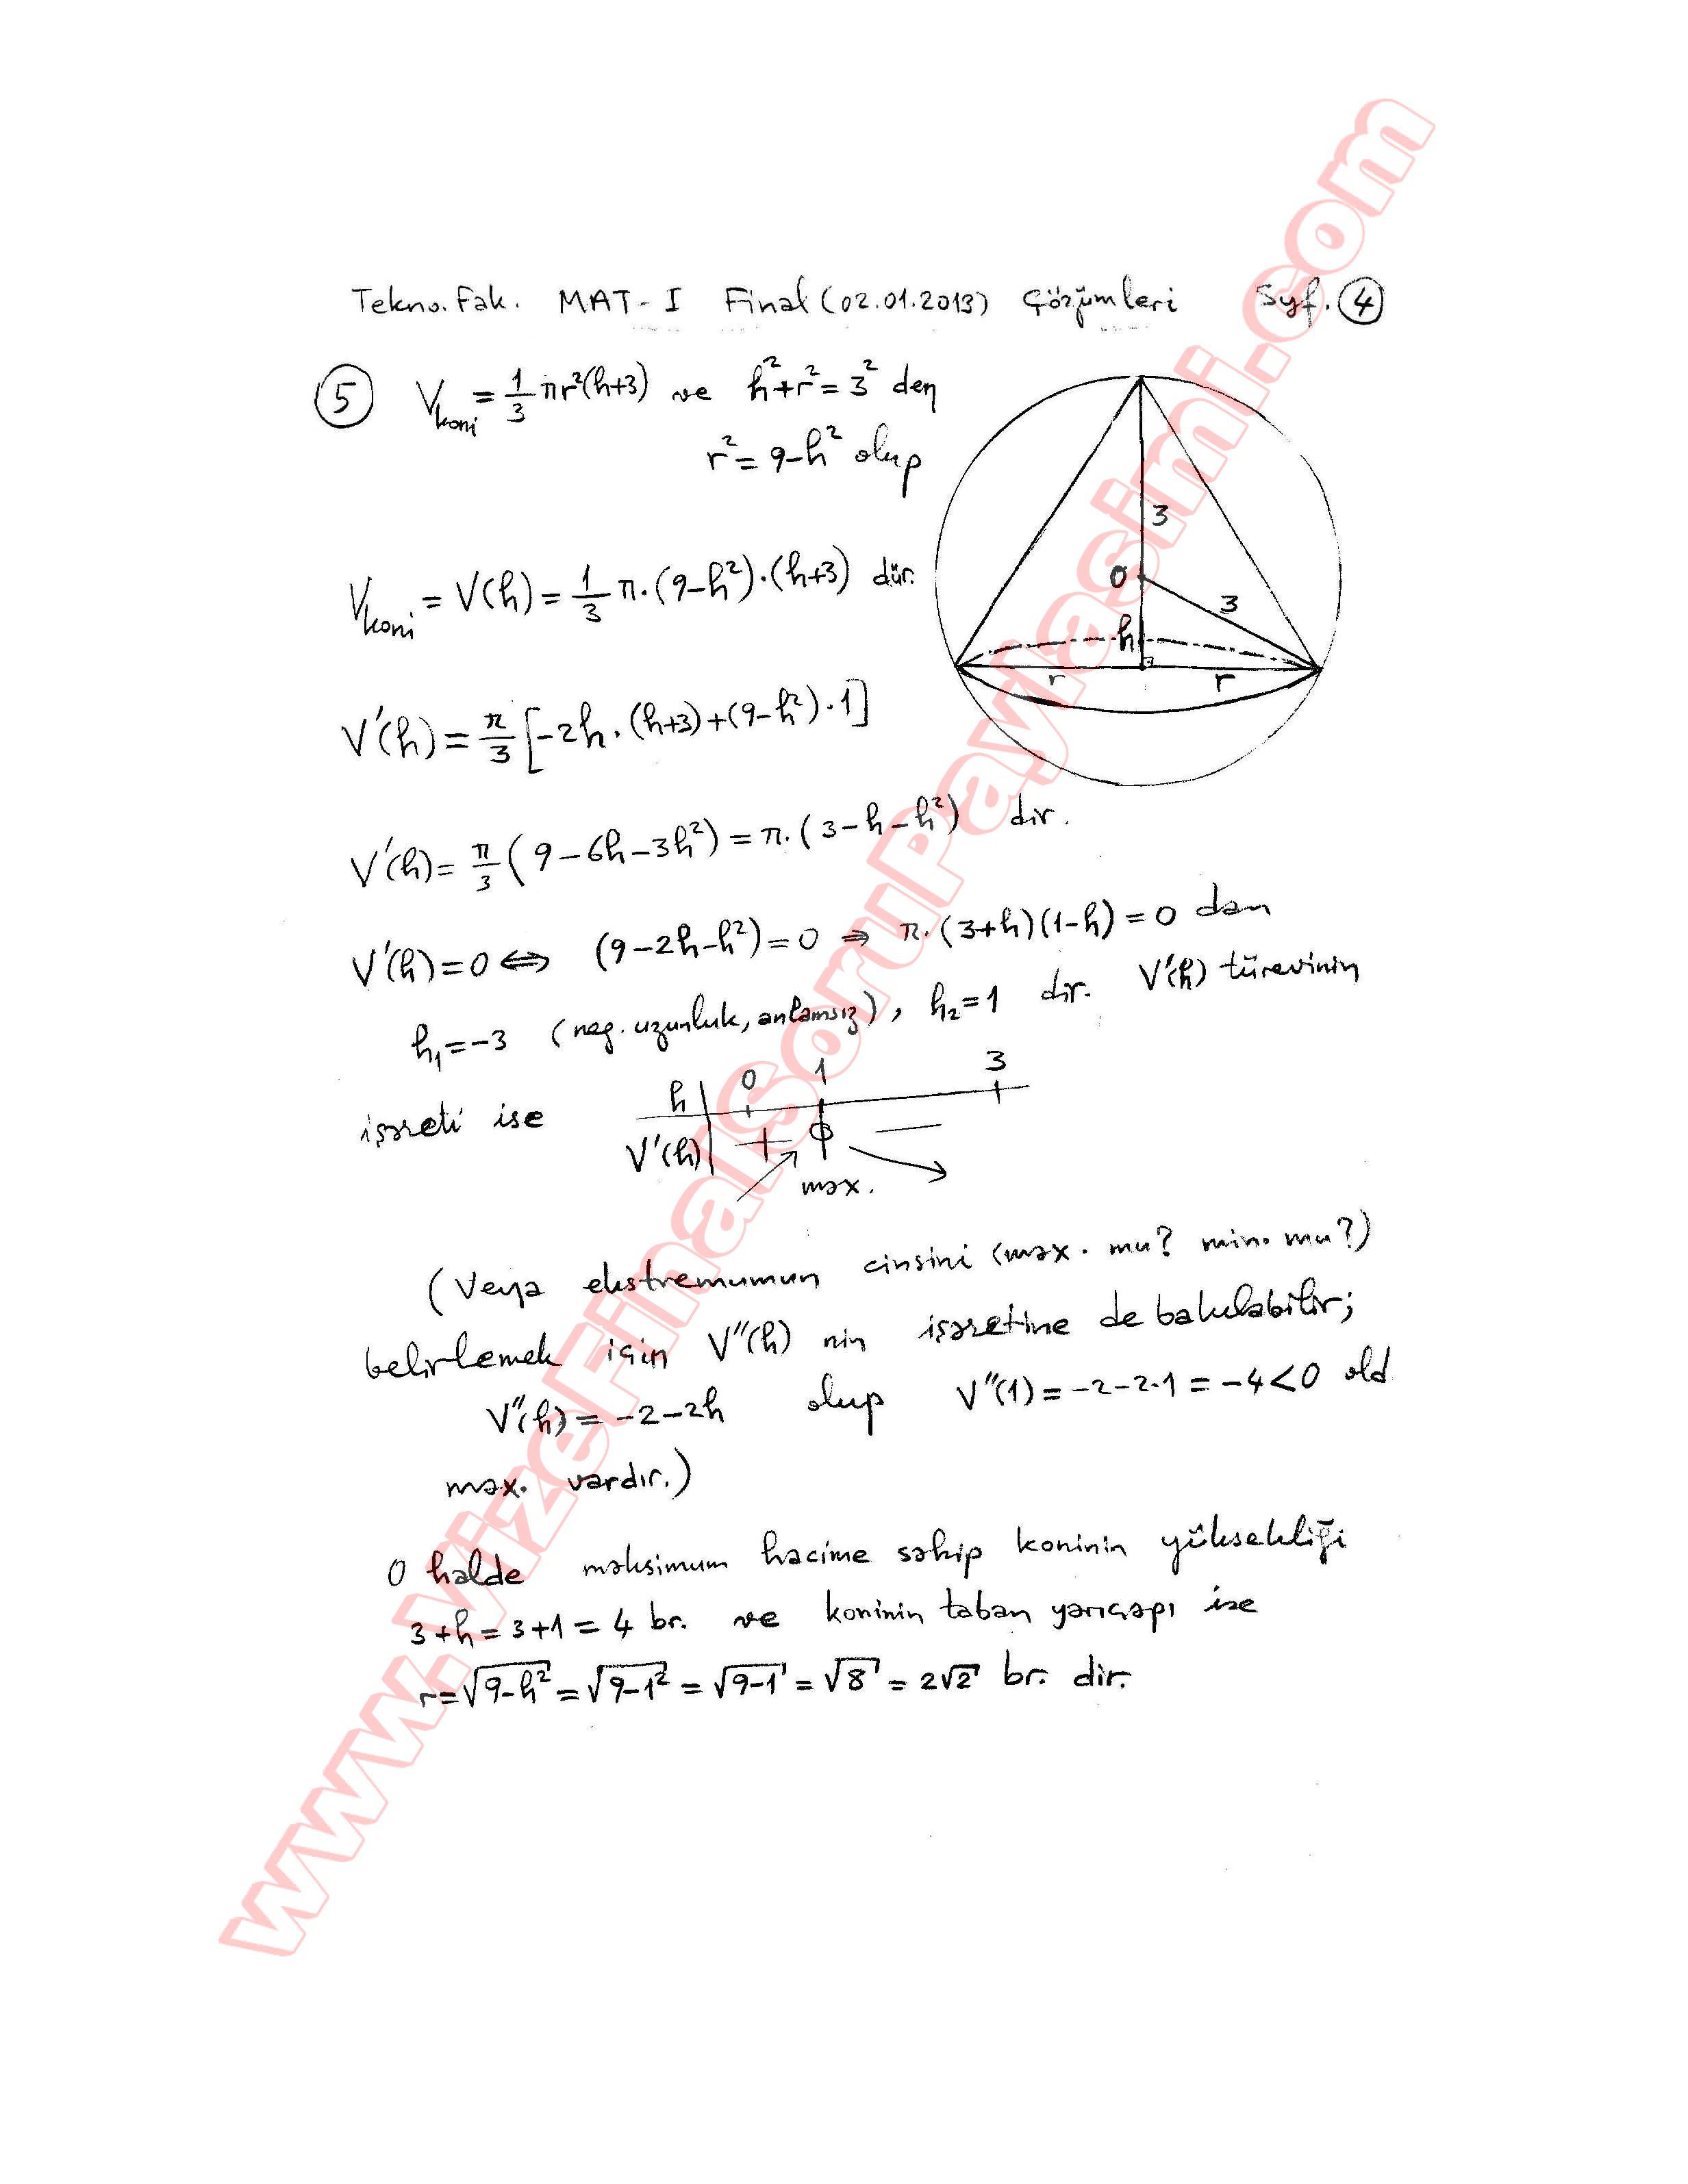 Tekno. Fak. MAT-I Final (02.01.2013) Çözümleri Syf. 4
5 V_koni = 1/3 πr²(h+3) ve h²+r²=3² den
r²=9-h² olup
V_koni = V(h) = 1/3 π.(9-h²).(h+3) dür.
3
O
3
h
r r
V'(h) = π/3 [-2h.(h+3)+(9-h²).1]
V'(h) = π/3 (9-6h-3h²) = π.(3-h-h²) dir.
V'(h)=0 ⇔ (9-2h-h²)=0 ⇒ π.(3+h)(1-h)=0 dan
h₁=-3 (neg. uzunluk, anlamsız), h₂=1 dir. V'(h) türevinin
işareti ise
h | 0 1 3
V'(h) | + 0 −
max.
(Veya ekstremumun cinsini (max. mu? min. mu?)
belirlemek için V''(h) nin işaretine de bakılabilir;
V''(h) = -2-2h olup V''(1) = -2-2.1 = -4<0 old.
max. vardır.)
O halde maksimum hacime sahip koninin yüksekliği
3+h=3+1=4 br. ve koninin taban yarıçapı ise
r=√9-h² = √9-1² = √9-1 = √8 = 2√2 br. dir.
www.VizeFinalSoruPaylasimi.com